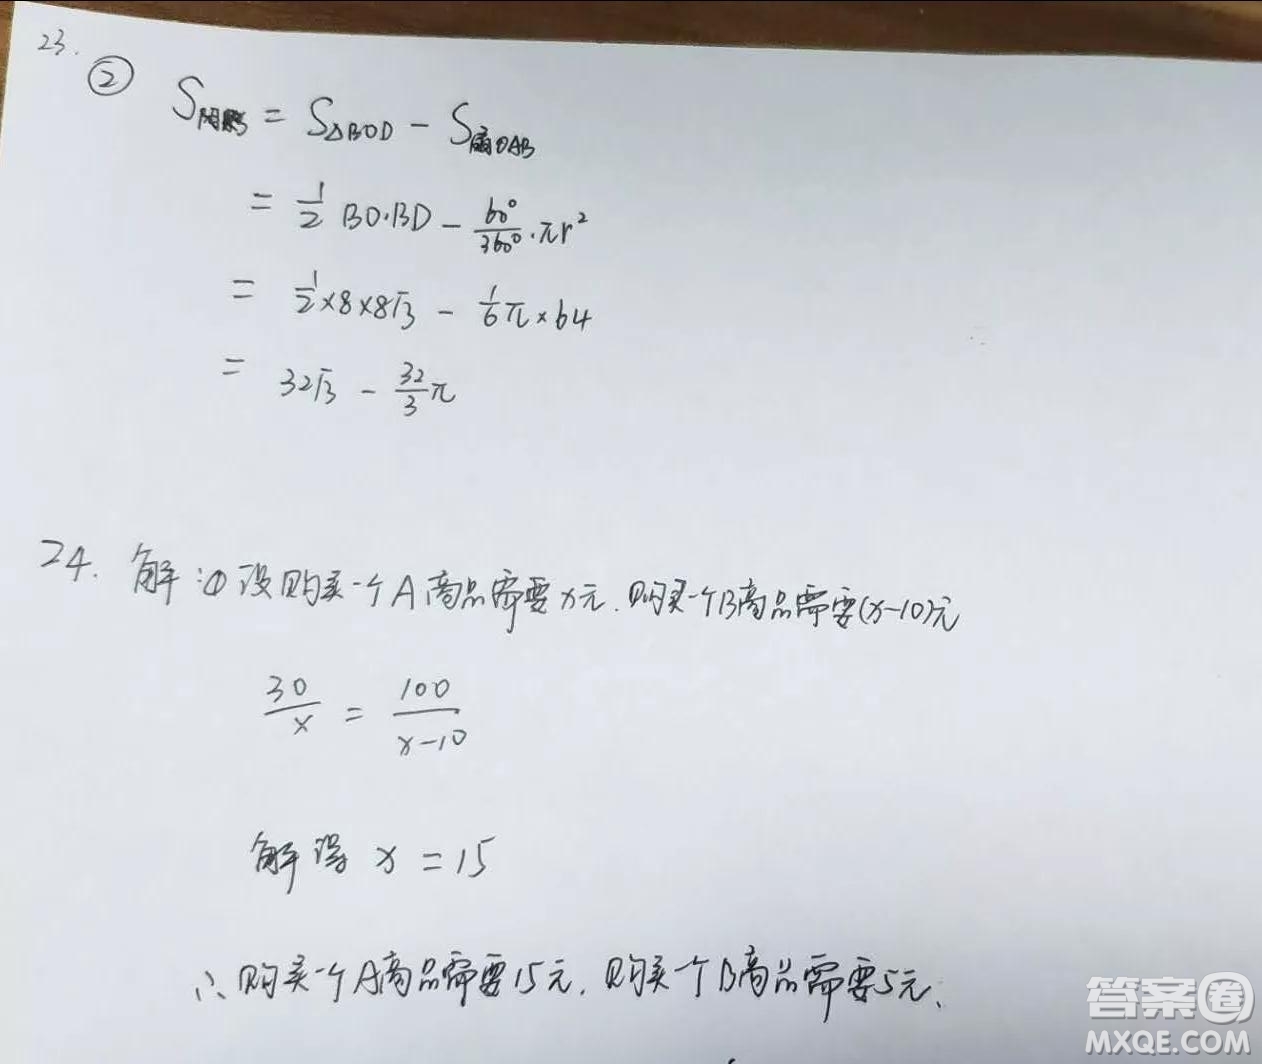 23.
② S阴影 = S△BOD - S扇OAB
= 1/2 BO·BD - 60°/360° · πr²
= 1/2 × 8 × 8√3 - 1/6 π × 64
= 32√3 - 32/3 π
24. 解:① 设购买一个A商品需要x元.购买一个B商品需要(x-10)元
30/x = 100/(x-10)
解得 x = 15
∴购买一个A商品需要15元.购买一个B商品需要5元、
答案圈
MXQE.COM